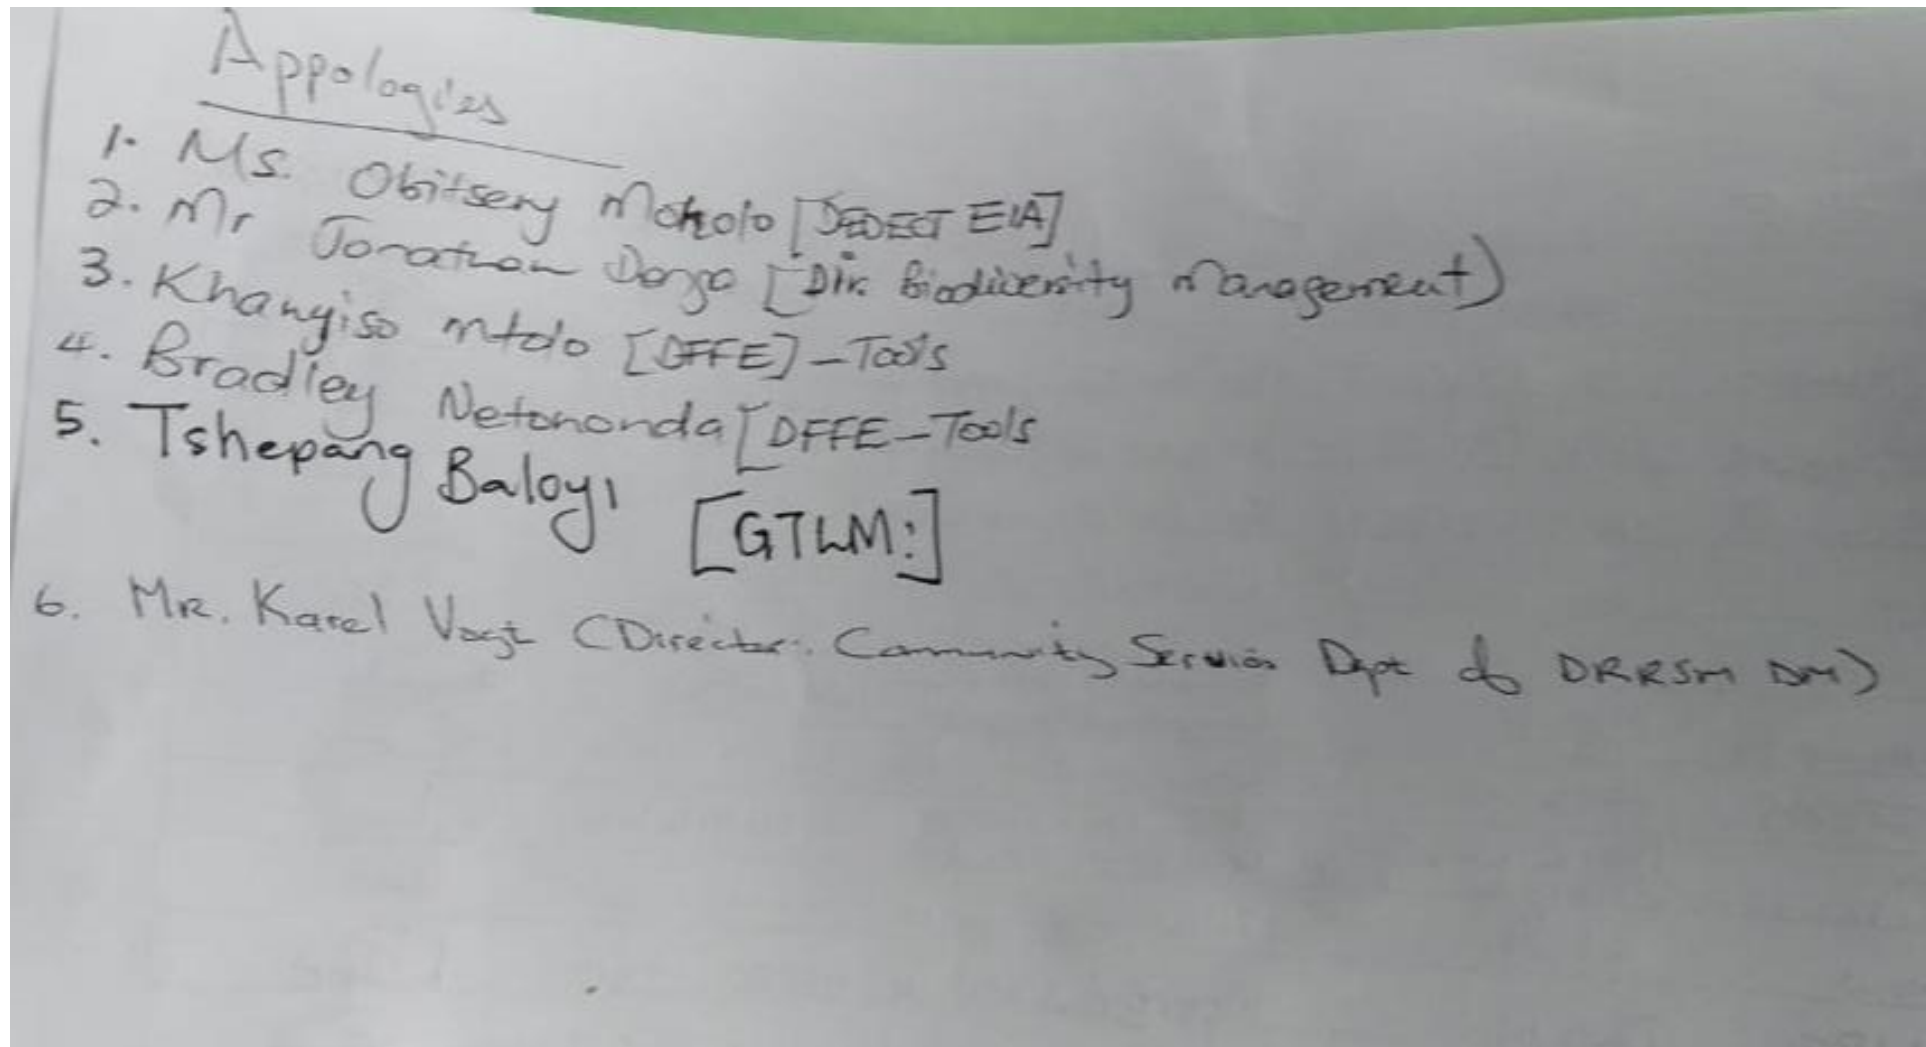 Appologies
1. Ms. Obitseng Mokolo [DEDECT EIA]
2. Mr Jonathan Denga [Dir. Biodiversity Management)
3. Khanyiso mtolo [DFFE] - Tools
4. Bradley Netononda [DFFE - Tools
5. Tshepang Baloyi [GTLM:]
6. MR. Karel Vogt (Director: Community Services Dpt of DRRSM DM)